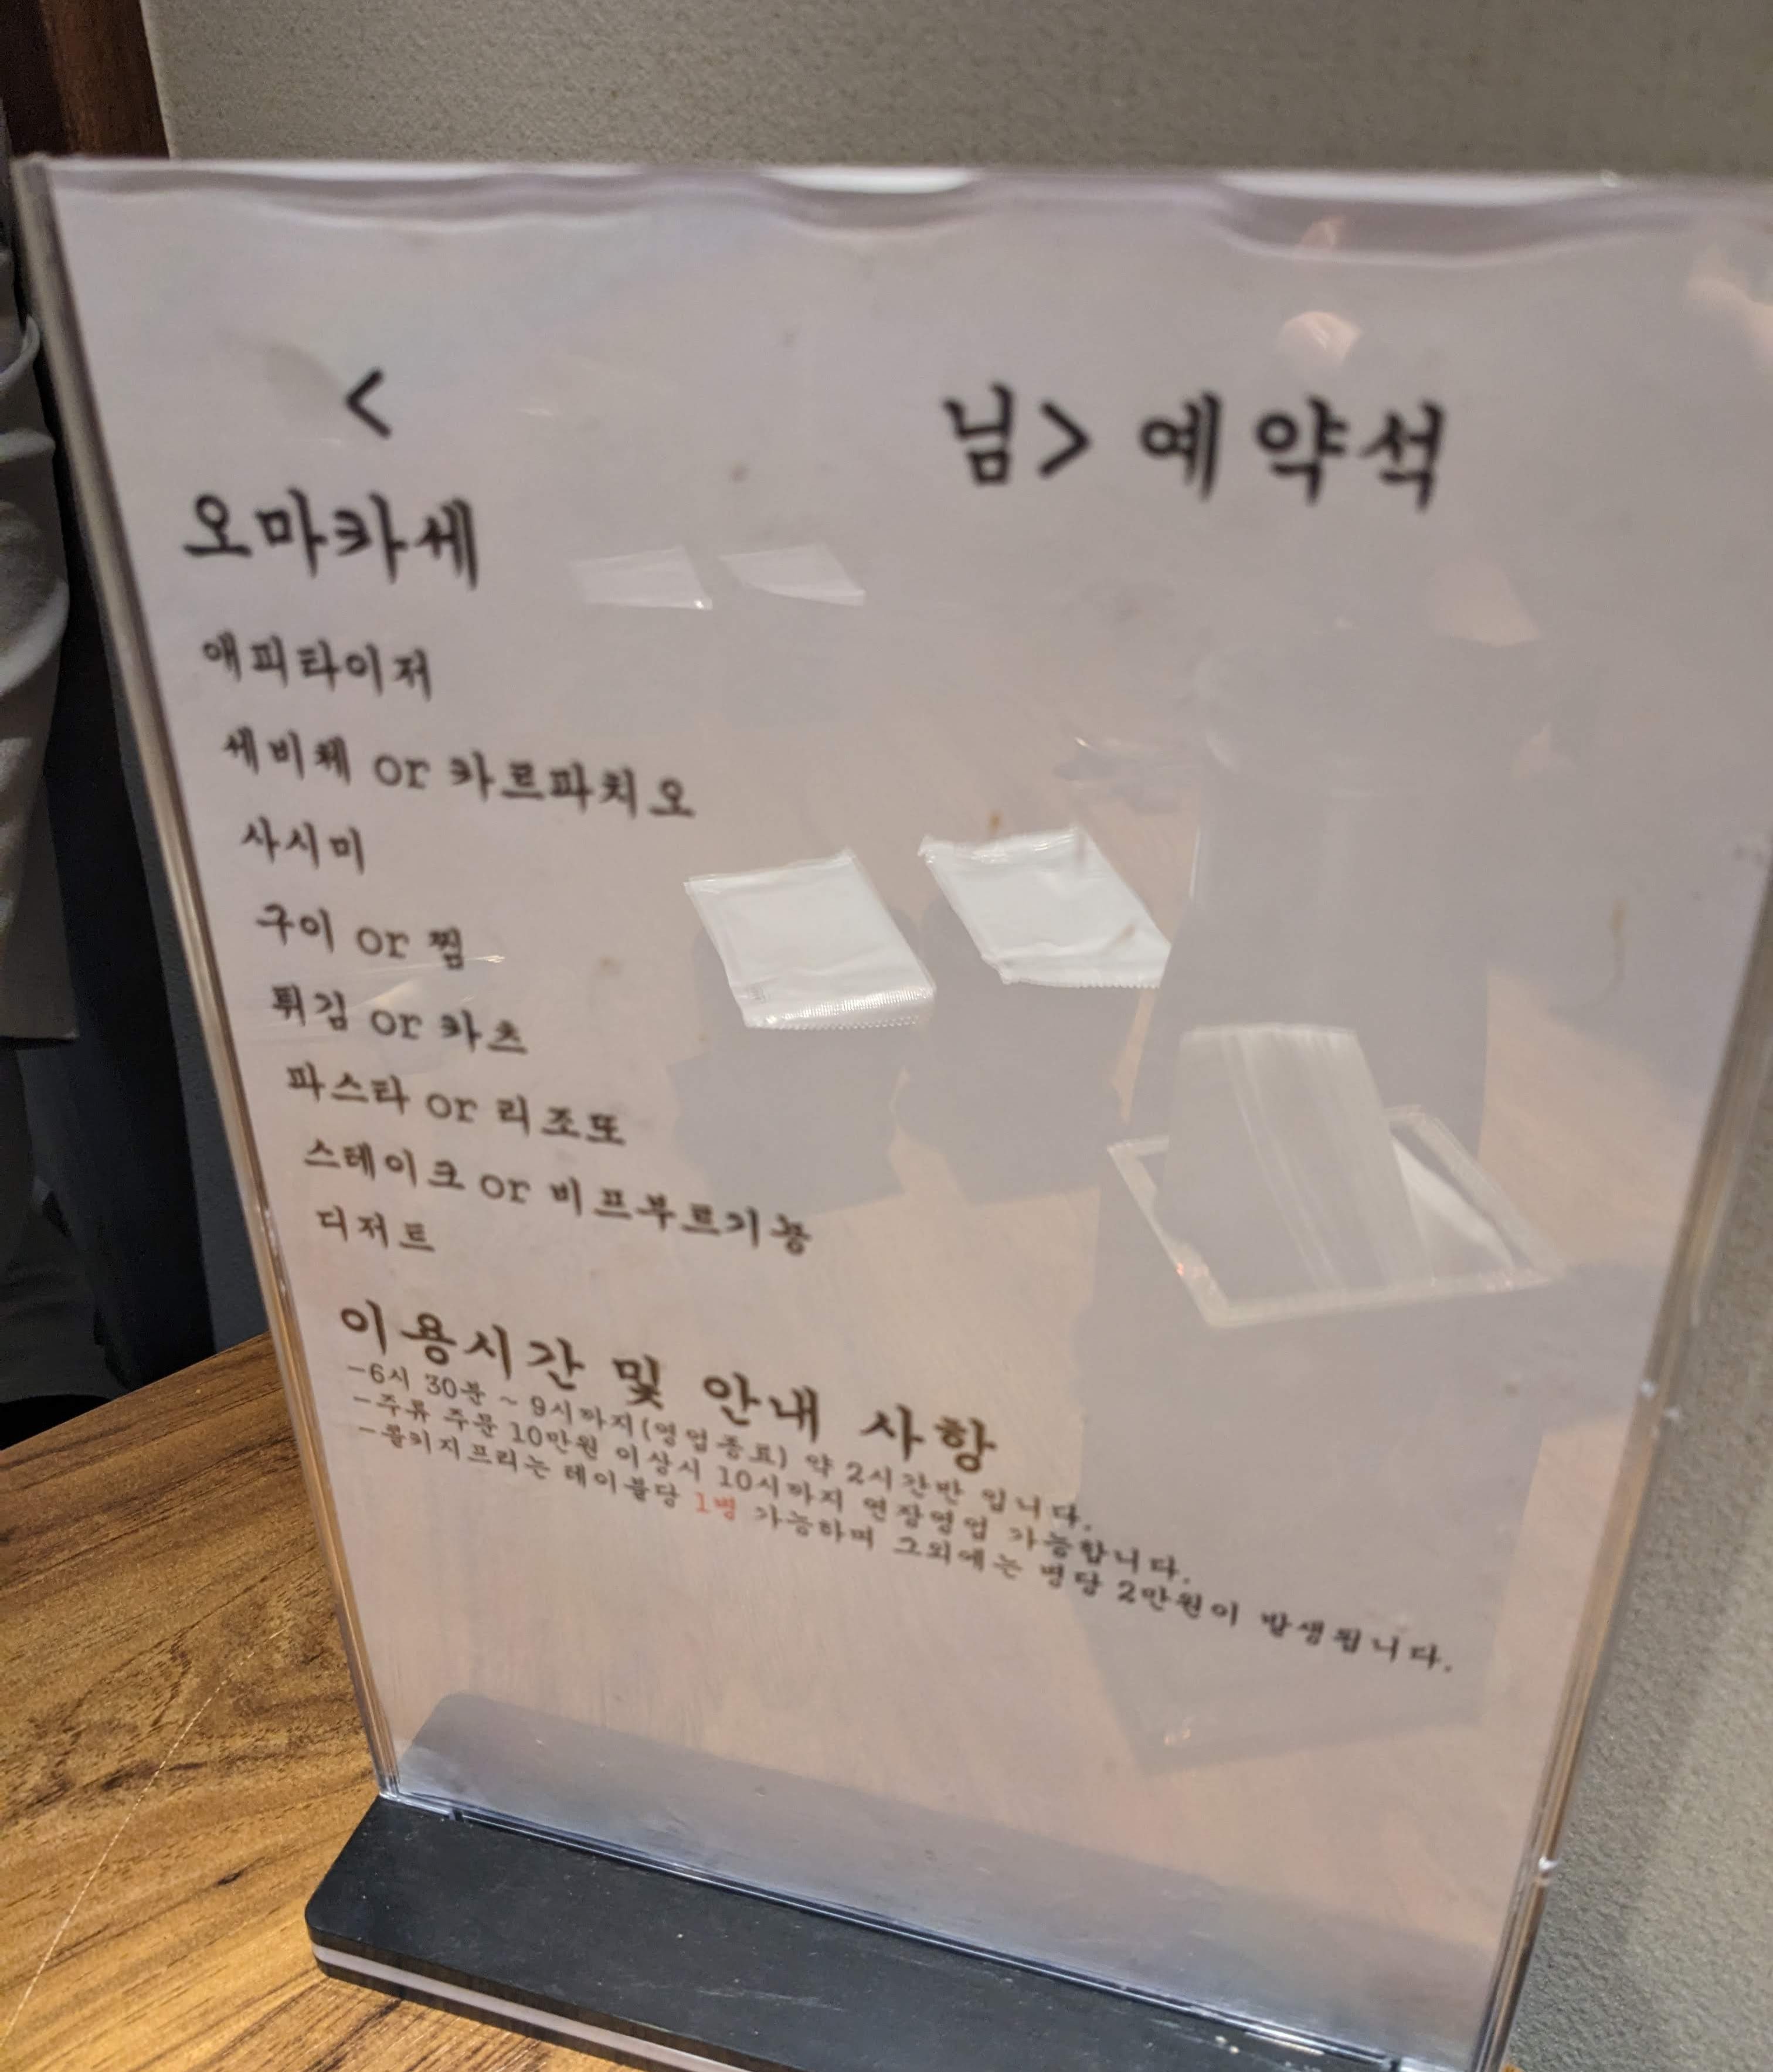 < 님> 예약석
오마카세
애피타이저
세비체 or 카르파치오
사시미
구이 or 찜
튀김 or 카츠
파스타 or 리조또
스테이크 or 비프부르기뇽
디저트
이용시간 및 안내 사항
-6시 30분 ~ 9시까지(영업종료) 약 2시간반 입니다.
-주류 주문 10만원 이상시 10시까지 연장영업 가능합니다.
-콜키지프리는 테이블당 1병 가능하며 그외에는 병당 2만원이 발생됩니다.